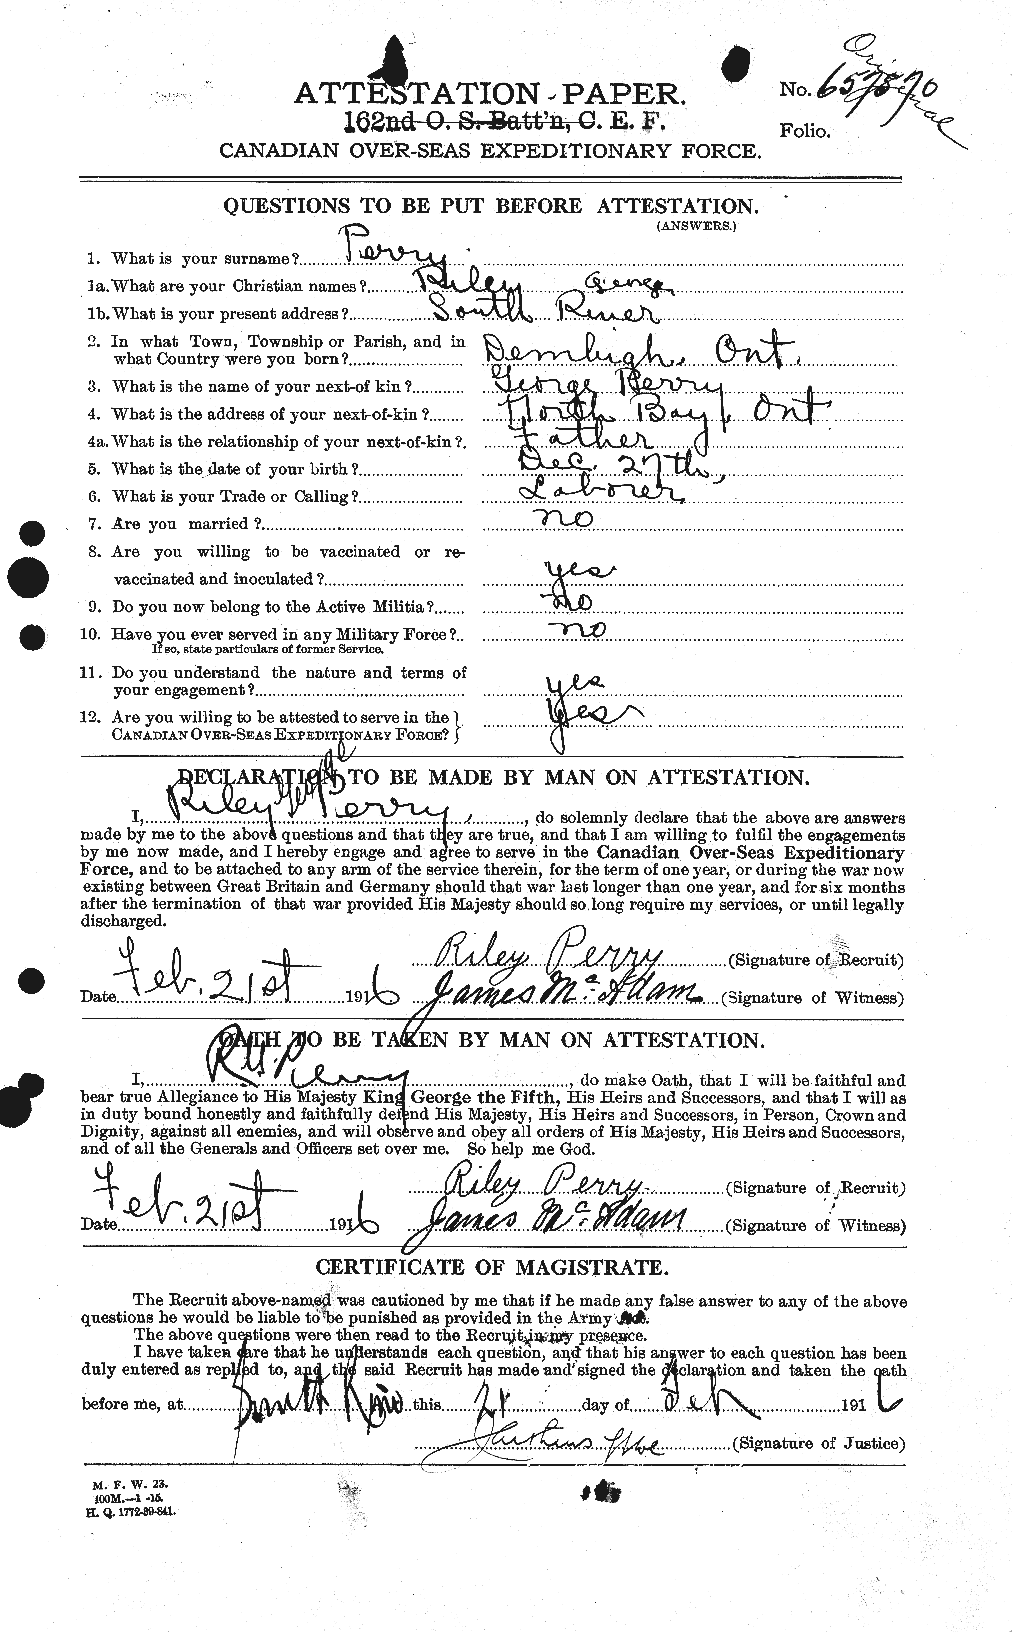 ATTESTATION PAPER.
No. 657570
Original
162nd O. S. Batt'n, C. E. F.
Folio.
CANADIAN OVER-SEAS EXPEDITIONARY FORCE.
QUESTIONS TO BE PUT BEFORE ATTESTATION.
(ANSWERS.)
1. What is your surname? Perry
1a. What are your Christian names? Riley George
1b. What is your present address? South River
2. In what Town, Township or Parish, and in
what Country were you born? Denbigh, Ont.
3. What is the name of your next-of kin? George Perry
4. What is the address of your next-of-kin? North Bay, Ont
4a. What is the relationship of your next-of-kin? Father
5. What is the date of your birth? Dec. 27th,
6. What is your Trade or Calling? Laborer
7. Are you married? no
8. Are you willing to be vaccinated or re-
vaccinated and inoculated? yes
9. Do you now belong to the Active Militia? no
10. Have you ever served in any Military Force? no
If so, state particulars of former Service.
11. Do you understand the nature and terms of
your engagement? yes
12. Are you willing to be attested to serve in the
CANADIAN OVER-SEAS EXPEDITIONARY FORCE? Yes
DECLARATION TO BE MADE BY MAN ON ATTESTATION.
I, Riley Perry, do solemnly declare that the above are answers
made by me to the above questions and that they are true, and that I am willing to fulfil the engagements
by me now made, and I hereby engage and agree to serve in the Canadian Over-Seas Expeditionary
Force, and to be attached to any arm of the service therein, for the term of one year, or during the war now
existing between Great Britain and Germany should that war last longer than one year, and for six months
after the termination of that war provided His Majesty should so long require my services, or until legally
discharged.
Riley Perry (Signature of Recruit)
Date Feb. 21st 1916 James McAdam (Signature of Witness)
OATH TO BE TAKEN BY MAN ON ATTESTATION.
I, R. G. Perry, do make Oath, that I will be faithful and
bear true Allegiance to His Majesty King George the Fifth, His Heirs and Successors, and that I will as
in duty bound honestly and faithfully defend His Majesty, His Heirs and Successors, in Person, Crown and
Dignity, against all enemies, and will observe and obey all orders of His Majesty, His Heirs and Successors,
and of all the Generals and Officers set over me. So help me God.
Riley Perry (Signature of Recruit)
Date Feb. 21st 1916 James McAdam (Signature of Witness)
CERTIFICATE OF MAGISTRATE.
The Recruit above-named was cautioned by me that if he made any false answer to any of the above
questions he would be liable to be punished as provided in the Army Act.
The above questions were then read to the Recruit in my presence.
I have taken care that he understands each question, and that his answer to each question has been
duly entered as replied to, and the said Recruit has made and signed the declaration and taken the oath
before me, at South River this 21 day of Feb 1916
(Signature of Justice)
M. F. W. 23.
100M.—1-15.
H. Q. 1772-39-841.